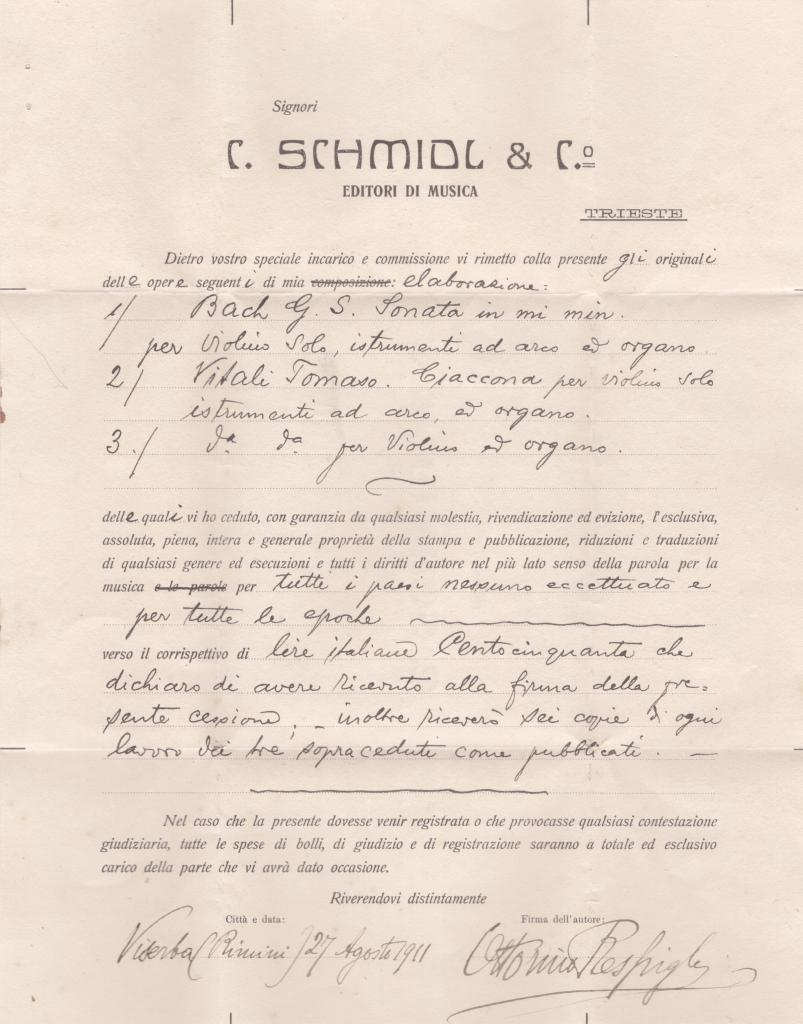 Signori
C. SCHMIDL & C.º
EDITORI DI MUSICA
TRIESTE
Dietro vostro speciale incarico e commissione vi rimetto colla presente gli originali
delle opere seguenti di mia composizione: elaborazione:
1/ Bach G. S. Sonata in mi min.
per Violino Solo, istrumenti ad arco ed organo.
2/ Vitali Tomaso. Ciaccona per violino solo
istrumenti ad arco, ed organo.
3./ da da per Violino ed organo.
delle quali vi ho ceduto, con garanzia da qualsiasi molestia, rivendicazione ed evizione, l'esclusiva,
assoluta, piena, intera e generale proprietà della stampa e pubblicazione, riduzioni e traduzioni
di qualsiasi genere ed esecuzioni e tutti i diritti d'autore nel più lato senso della parola per la
musica e le parole per tutti i paesi nessuno eccettuato e
per tutte le epoche
verso il corrispettivo di lire italiane Centocinquanta che
dichiaro di avere ricevuto alla firma della pre=
sente cessione, – inoltre riceverò sei copie di ogni
lavoro dei tre sopraceduti come pubblicati. —
Nel caso che la presente dovesse venir registrata o che provocasse qualsiasi contestazione
giudiziaria, tutte le spese di bolli, di giudizio e di registrazione saranno a totale ed esclusivo
carico della parte che vi avrà dato occasione.
Riverendovi distintamente
Città e data: Firma dell'autore:
Viserba (Rimini) 27 Agosto 1911 Ottorino Respighi